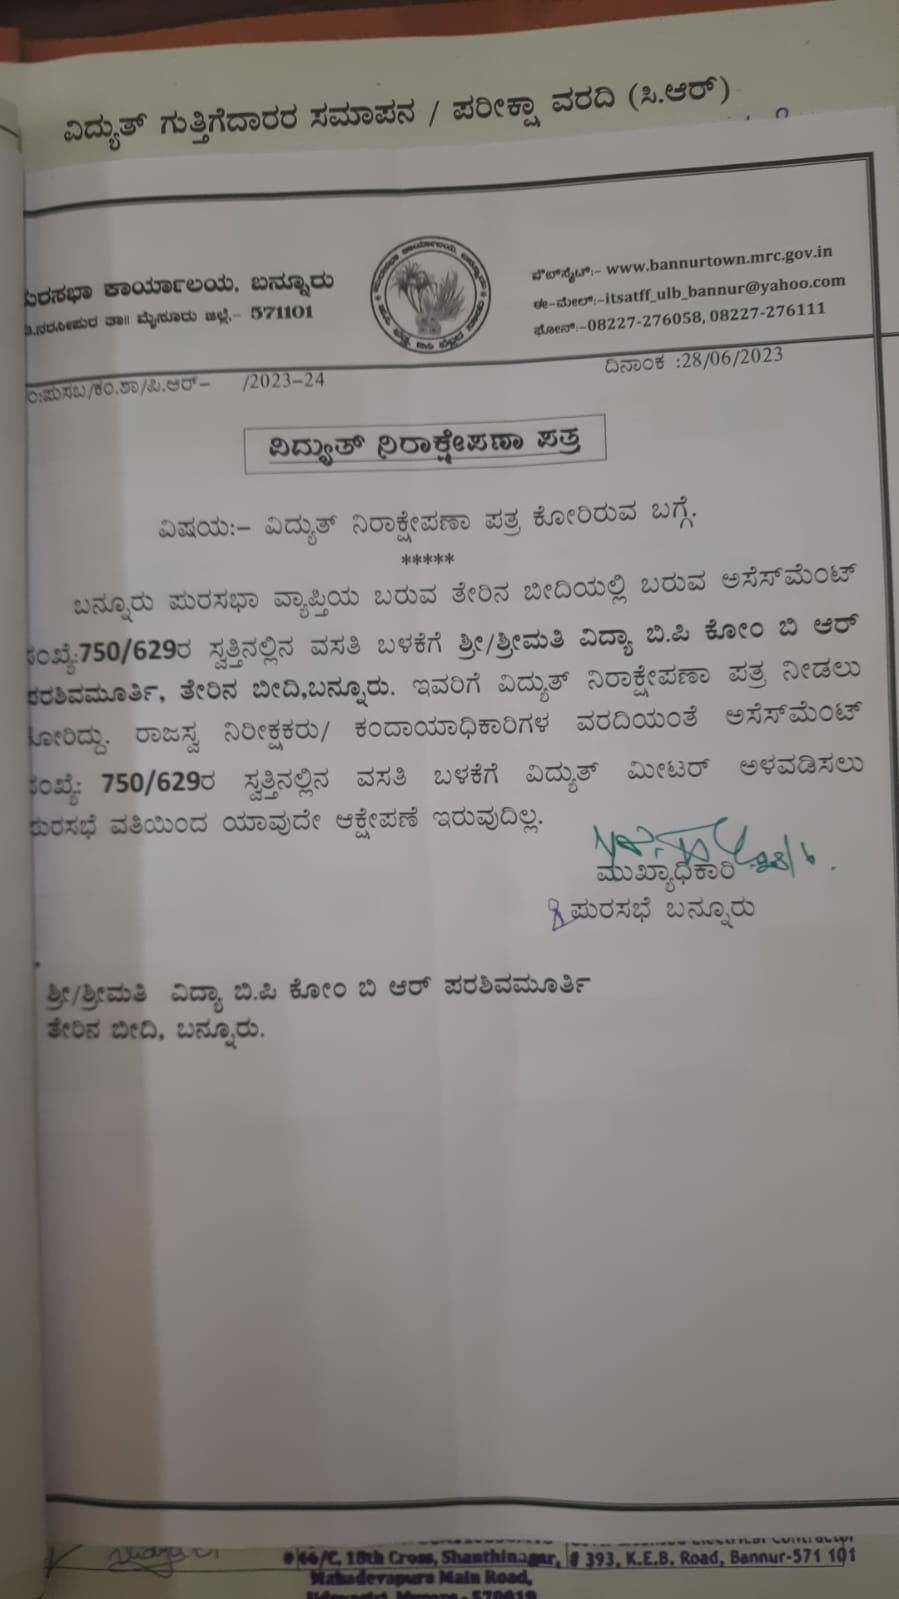 ವಿದ್ಯುತ್ ಗುತ್ತಿಗೆದಾರರ ಸಮಾಪನ / ಪರೀಕ್ಷಾ ವರದಿ (ಸಿ.ಆರ್)
ಪುರಸಭಾ ಕಾರ್ಯಾಲಯ, ಬನ್ನೂರು
ತಾ॥ ಮೈಸೂರು ಜಿಲ್ಲೆ.- 571101
ವೆಬ್‌ಸೈಟ್:- www.bannurtown.mrc.gov.in
ಈ-ಮೇಲ್:-itsatff_ulb_bannur@yahoo.com
ಫೋನ್:-08227-276058, 08227-276111
ಪುಸಬ/ಕಂ.ಶಾ/ಪಿ.ಆರ್- /2023-24
ದಿನಾಂಕ :28/06/2023
ವಿದ್ಯುತ್ ನಿರಾಕ್ಷೇಪಣಾ ಪತ್ರ
ವಿಷಯ:- ವಿದ್ಯುತ್ ನಿರಾಕ್ಷೇಪಣಾ ಪತ್ರ ಕೋರಿರುವ ಬಗ್ಗೆ.
*****
ಬನ್ನೂರು ಪುರಸಭಾ ವ್ಯಾಪ್ತಿಯ ಬರುವ ತೇರಿನ ಬೀದಿಯಲ್ಲಿ ಬರುವ ಅಸೆಸ್‌ಮೆಂಟ್
ಸಂಖ್ಯೆ:750/629ರ ಸ್ವತ್ತಿನಲ್ಲಿನ ವಸತಿ ಬಳಕೆಗೆ ಶ್ರೀ/ಶ್ರೀಮತಿ ವಿದ್ಯಾ ಬಿ.ಪಿ ಕೋಂ ಬಿ ಆರ್
ಪರಶಿವಮೂರ್ತಿ, ತೇರಿನ ಬೀದಿ,ಬನ್ನೂರು. ಇವರಿಗೆ ವಿದ್ಯುತ್ ನಿರಾಕ್ಷೇಪಣಾ ಪತ್ರ ನೀಡಲು
ಕೋರಿದ್ದು. ರಾಜಸ್ವ ನಿರೀಕ್ಷಕರು/ ಕಂದಾಯಾಧಿಕಾರಿಗಳ ವರದಿಯಂತೆ ಅಸೆಸ್‌ಮೆಂಟ್
ಸಂಖ್ಯೆ: 750/629ರ ಸ್ವತ್ತಿನಲ್ಲಿನ ವಸತಿ ಬಳಕೆಗೆ ವಿದ್ಯುತ್ ಮೀಟರ್ ಅಳವಡಿಸಲು
ಪುರಸಭೆ ವತಿಯಿಂದ ಯಾವುದೇ ಆಕ್ಷೇಪಣೆ ಇರುವುದಿಲ್ಲ.
28/6
ಮುಖ್ಯಾಧಿಕಾರಿ
ಪುರಸಭೆ ಬನ್ನೂರು
ಶ್ರೀ/ಶ್ರೀಮತಿ ವಿದ್ಯಾ ಬಿ.ಪಿ ಕೋಂ ಬಿ ಆರ್ ಪರಶಿವಮೂರ್ತಿ
ತೇರಿನ ಬೀದಿ, ಬನ್ನೂರು.
# 46/C, 18th Cross, Shanthinagar, # 393, K.E.B. Road, Bannur-571 101
Mahadevapura Main Road,